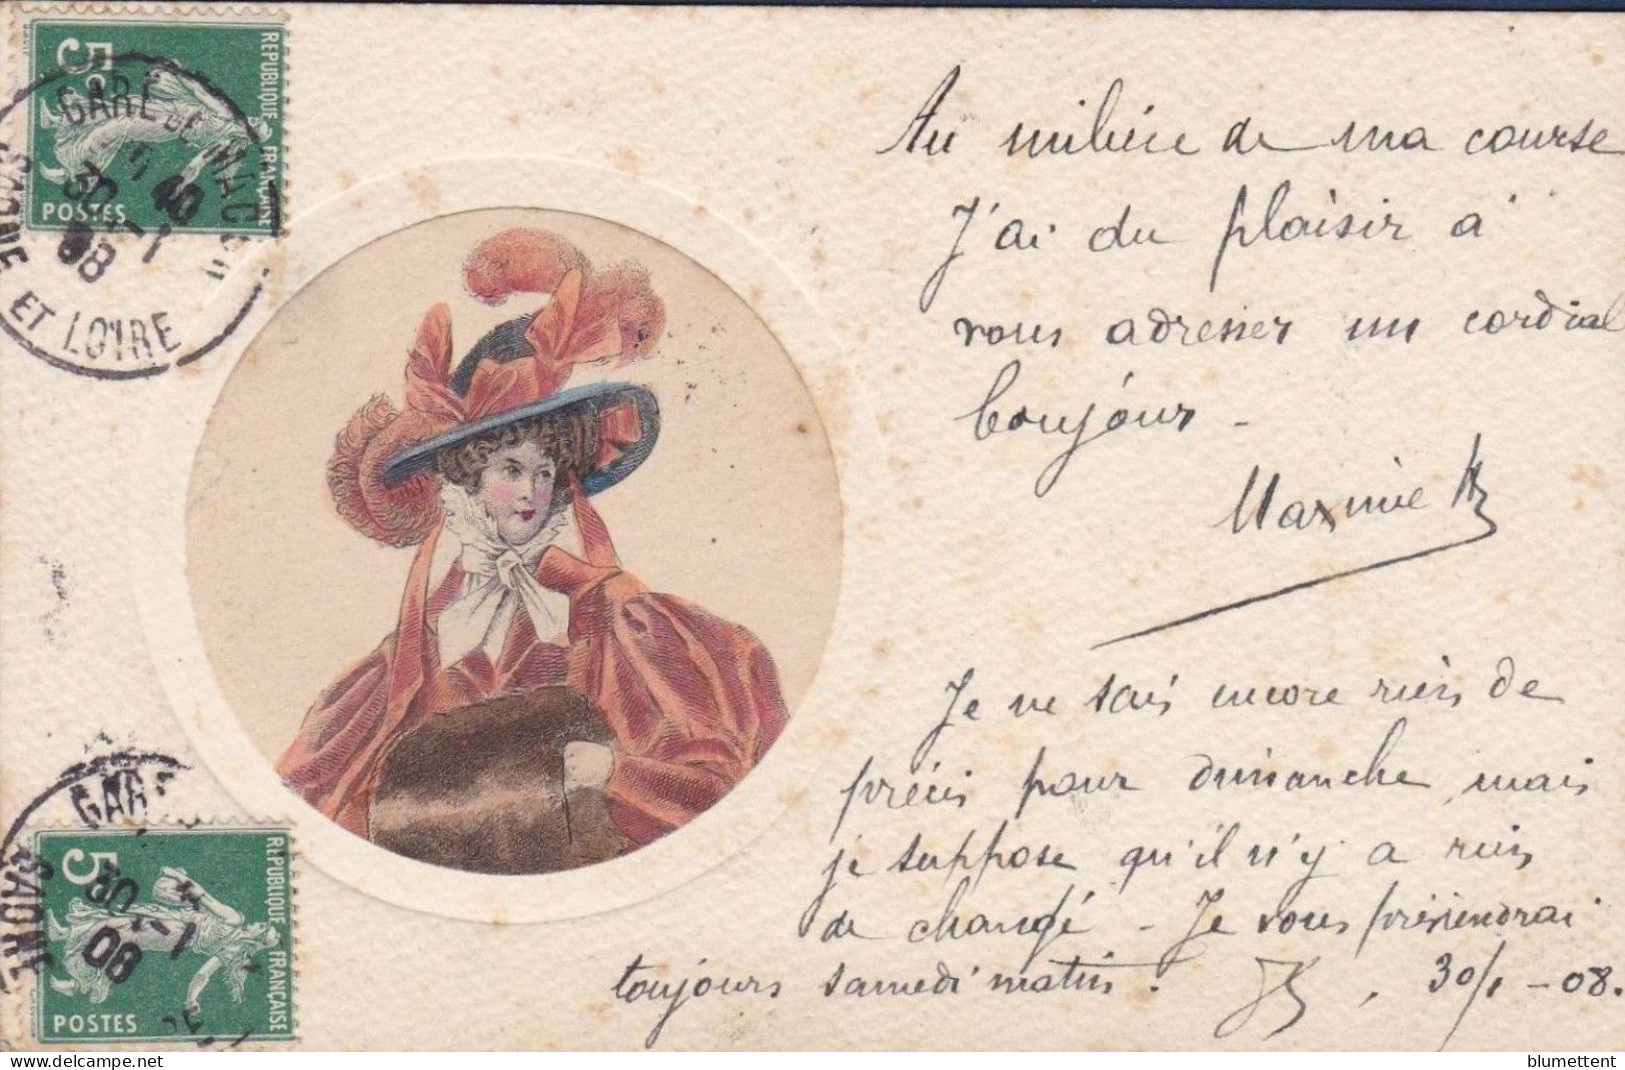 5c
REPUBLIQUE FRANÇAISE
POSTES
GARE DE MACON
30 - 1
08
SAONE ET LOIRE
Au milieu de ma course
J'ai du plaisir à
vous adresser un cordial
bonjour -
Maxime
Je ne sais encore rien de
précis pour dimanche, mais
je suppose qu'il n'y a rien
de changé - Je vous préviendrai
toujours samedi matin. , 30/1 - 08.
GARE
SAONE
5c
30 - 1
08
REPUBLIQUE FRANÇAISE
POSTES
blumettent